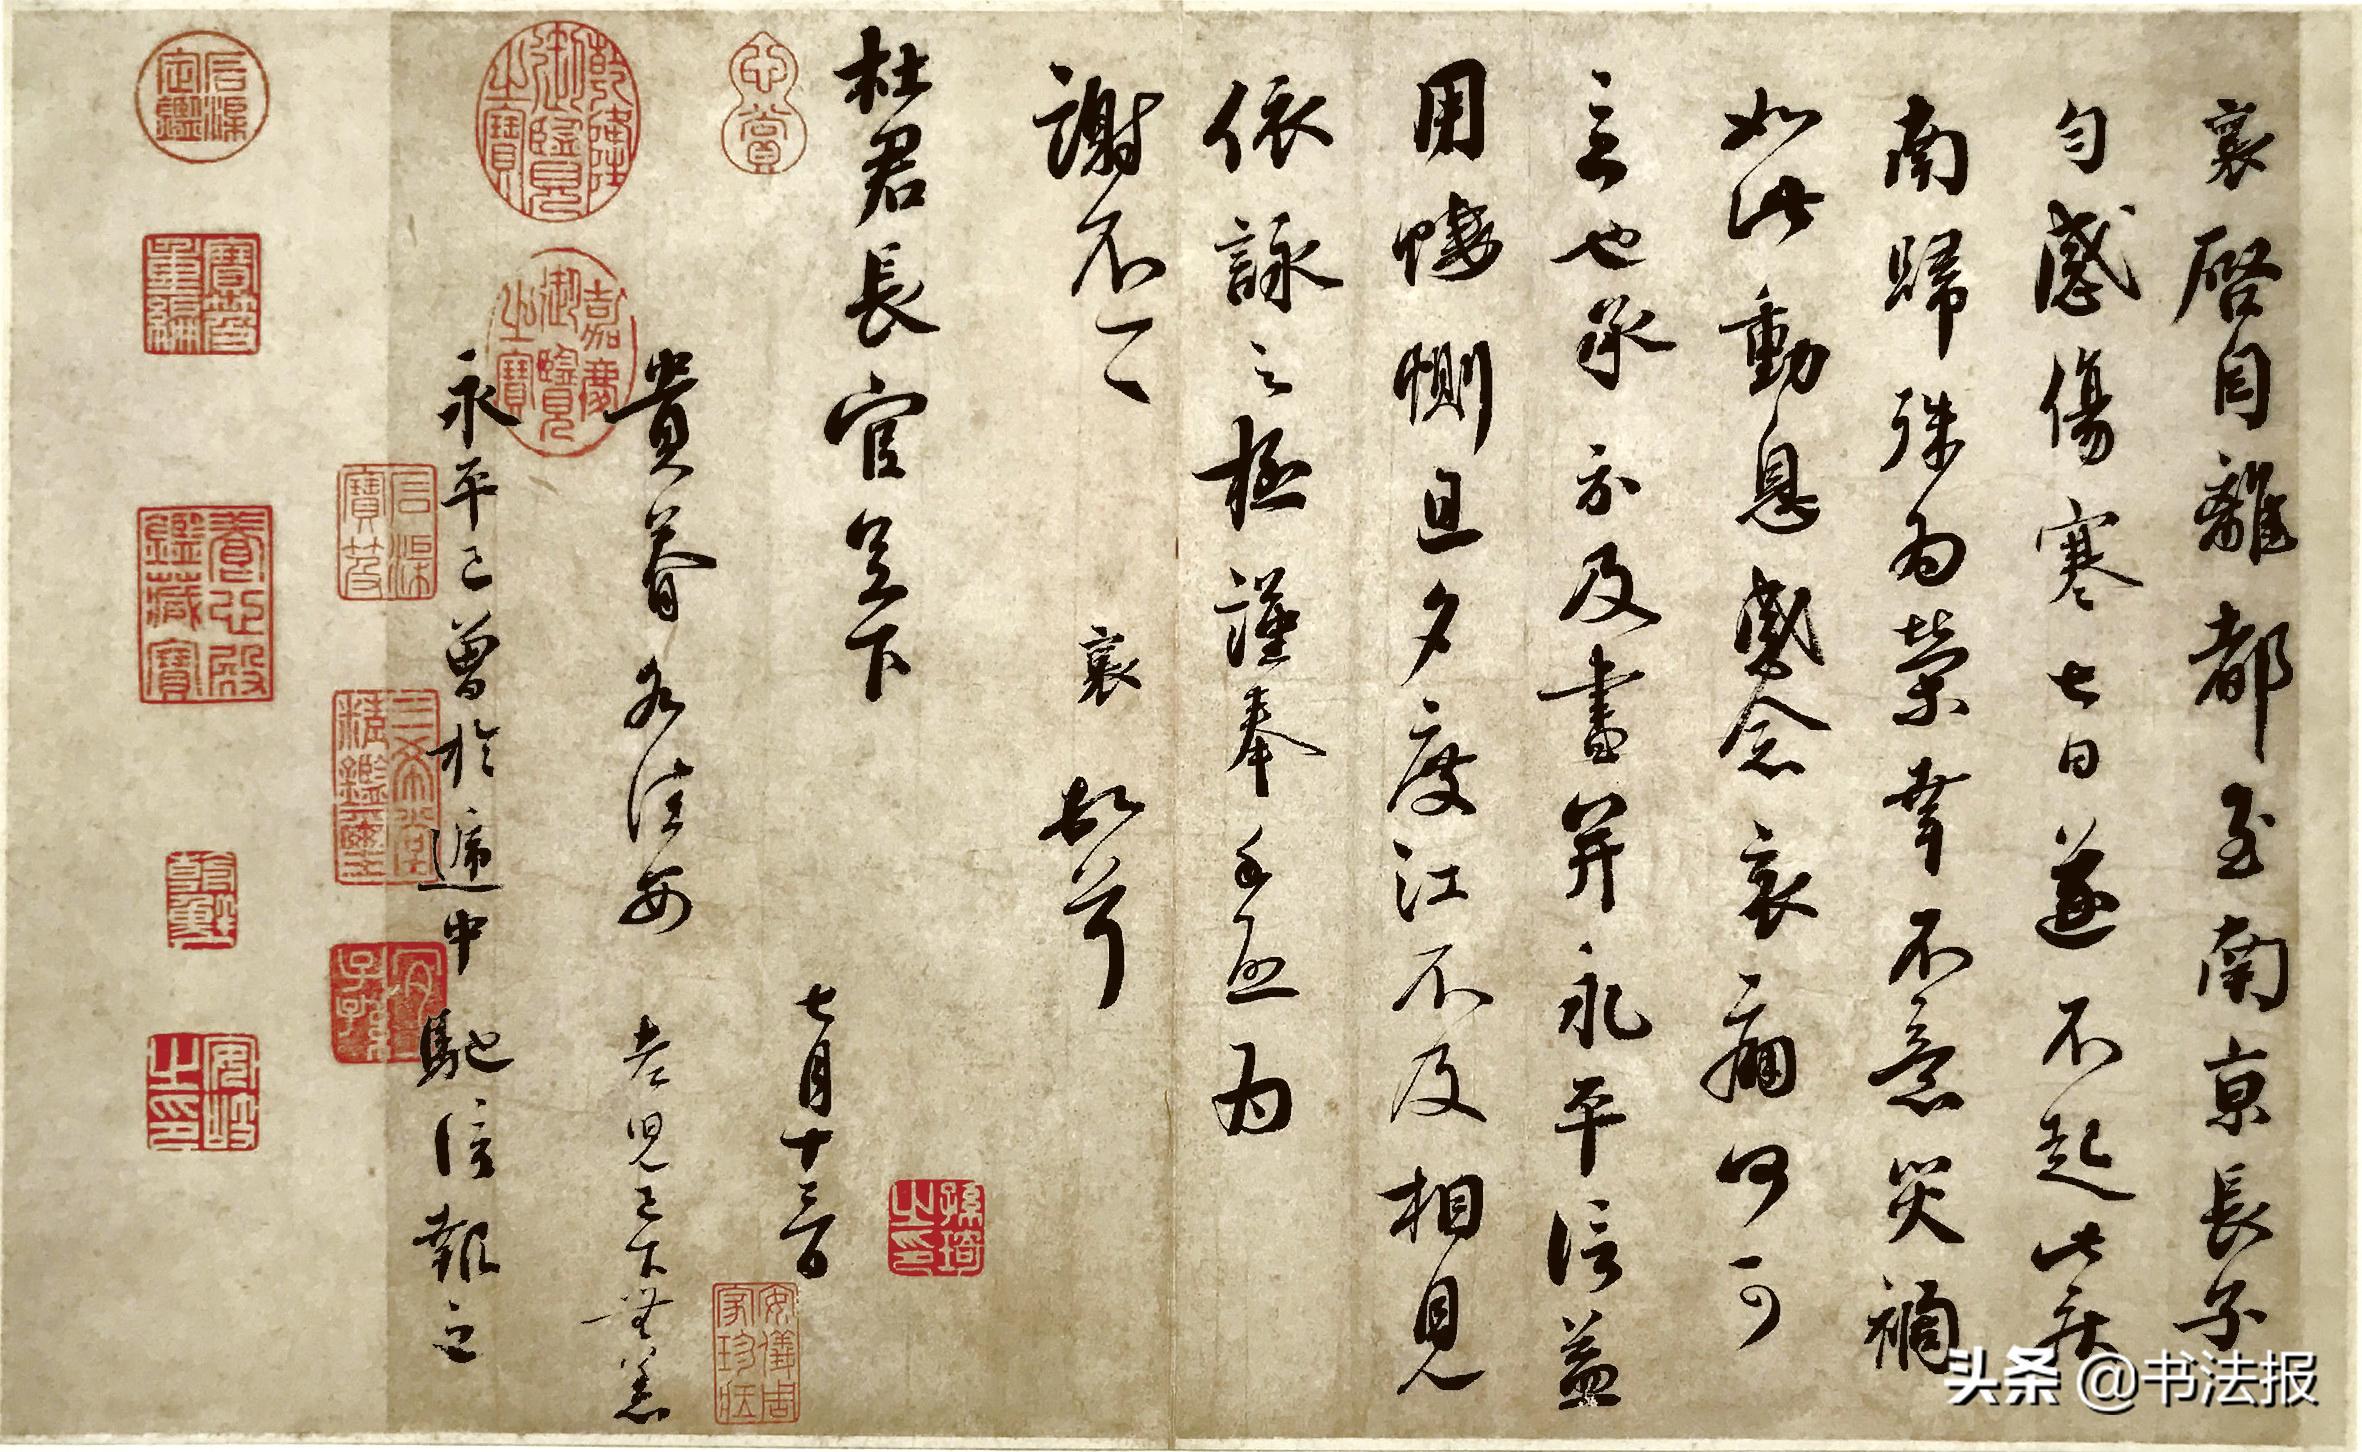 襄啓自離都至南京長子
匀感傷寒七日遂不起此疾
南歸殊为榮幸不意災禍
如此動息感念哀痛何可
言也承示及書并永平信益
用悽惻旦夕度江不及相見
依詠之極謹奉手啓为
謝不一一 襄 頓首
杜君長官足下
七月十三日
貴眷各佳安 老兒已下無恙
永平已曾於遞中馳信報之
乾隆御覽之寶
嘉慶御覽之寶
心賞
石渠定鑑
寶笈重編
石渠寶笈
養心殿鑑藏寶
三希堂精鑑璽
宜子孫
乾隆
安岐之印
孫琦之印
安儀周家珍藏
头条 @书法报